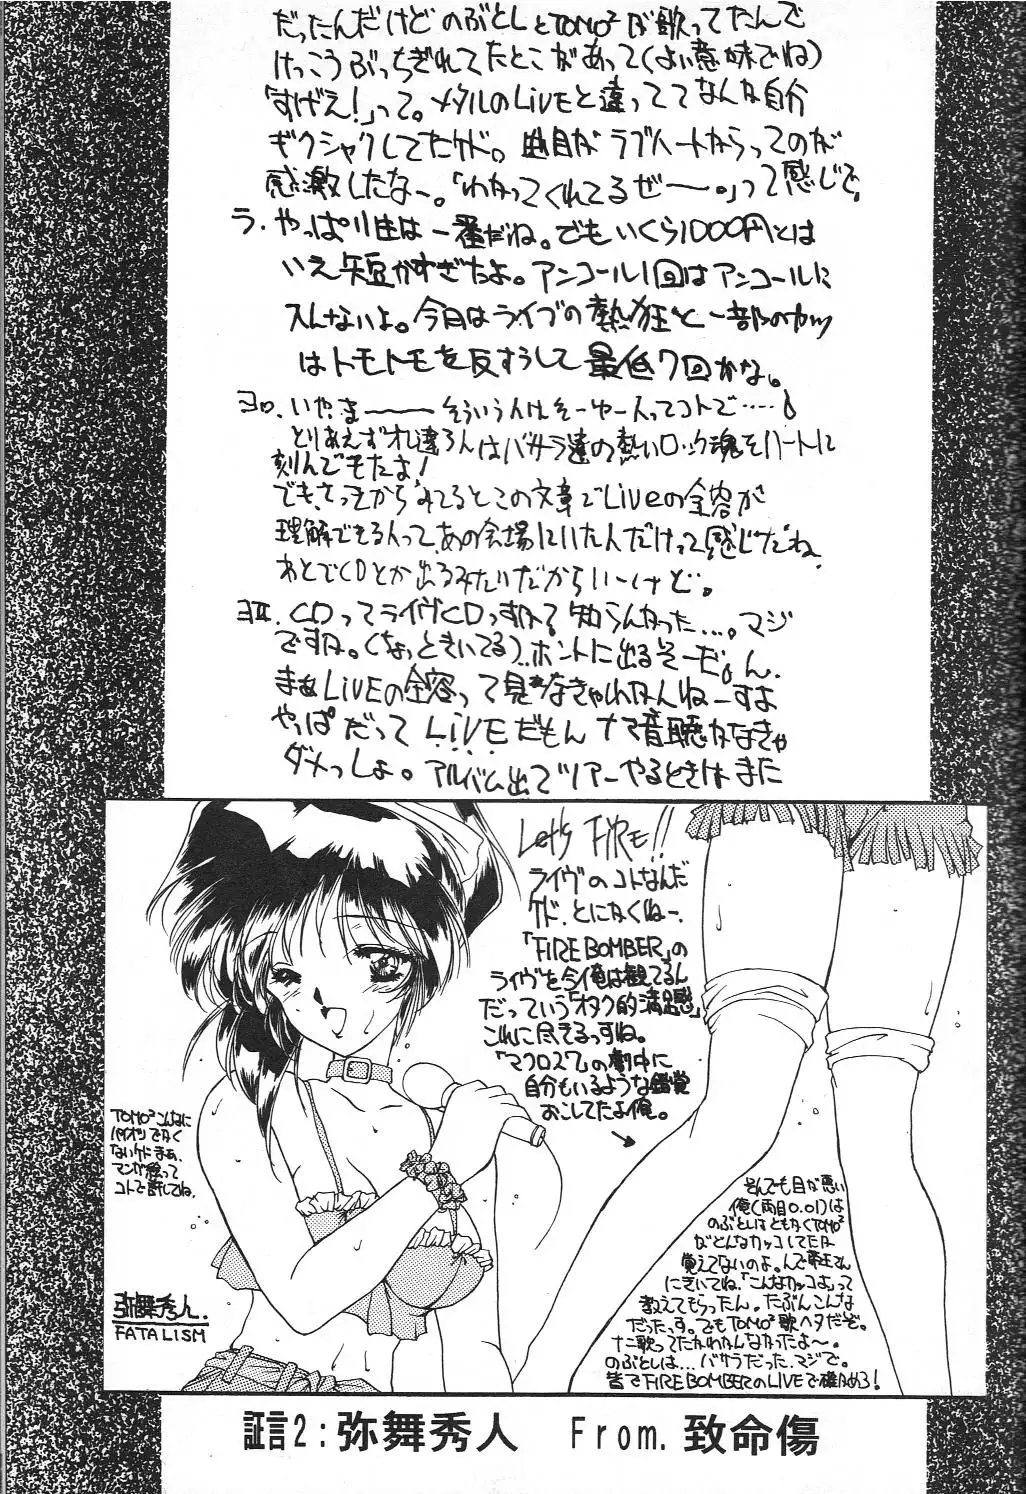 だったんだけどのぶとしとTOMO²が歌ってたんで
けっこうぶっちぎれてたとこがあって(よい意味でね)
「すげえ!」って。メタルのLiVEと違っててなんか自分
ギクシャクしてたケド。曲目がラブハートからってのが
感激したなー。「わかってくれてるぜー。」って感じで。
ラ.やっぱ川住は一番だね。でもいくら1000円とは
いえ短かすぎたよ。アンコール1回はアンコールに
入んないよ。今日はライブの熱狂と一部のカッ
はトモトモを反すうして最低7回かな。
ヨロ.いや.まーーそういう人はそーゆー人ってコトで……
とりあえずオレ達ろんはバサラ達の熱いロック魂をハートに
刻んでもたよ!
でも.さっきからみてるとこの文章でLiveの全容が
理解できる人って、あの会場にいた人だけって感じだね
あとでCDとか出るみたいだからいーけど。
ヨII.CDってライヴCDっすね?知らんかった….。マジ
ですね。(ちょっときいてる)..ホントに出るそーだ。ん.
まぁLiVEの全容って見なきゃわかんねーすよ
やっぱだってLiVEだもんナマ音聴かなきゃ
ダメっしょ。アルバム出てツアーやるときはまた
Let's FIRE!!
ライヴのコトなんだ
ケド、とにかくねー、
「FIRE BOMBER」の
ライヴを今俺は観てるん
だっていう「オタク的満足感」
これに尽きるっすね。
「マクロス7」の劇中に
自分もいるような錯覚
おこしてたよ俺。
TOMO²こんなに
パイオツでかく
ないケドまぁ、
マンガ絵って
コトで許してね.
弥舞秀人.
FATALISM
そんでも目が悪い
俺(両目0.01)は
のぶとしはともかくTOMO²
がどんなカッコしてたか
覚えてないのよ。んで帝王さん
にきいてね.「こんなカッコよ」って
教えてもらったん。たぶんこんな
だったっす。でもTOMO²歌ヘタだぞ。
ナニ歌ってたかわかんなかったよ〜。
のぶとしは…バサラだった.マジで。
皆でFIRE BOMBERのLIVEで確かめろ!
証言2:弥舞秀人 From.致命傷